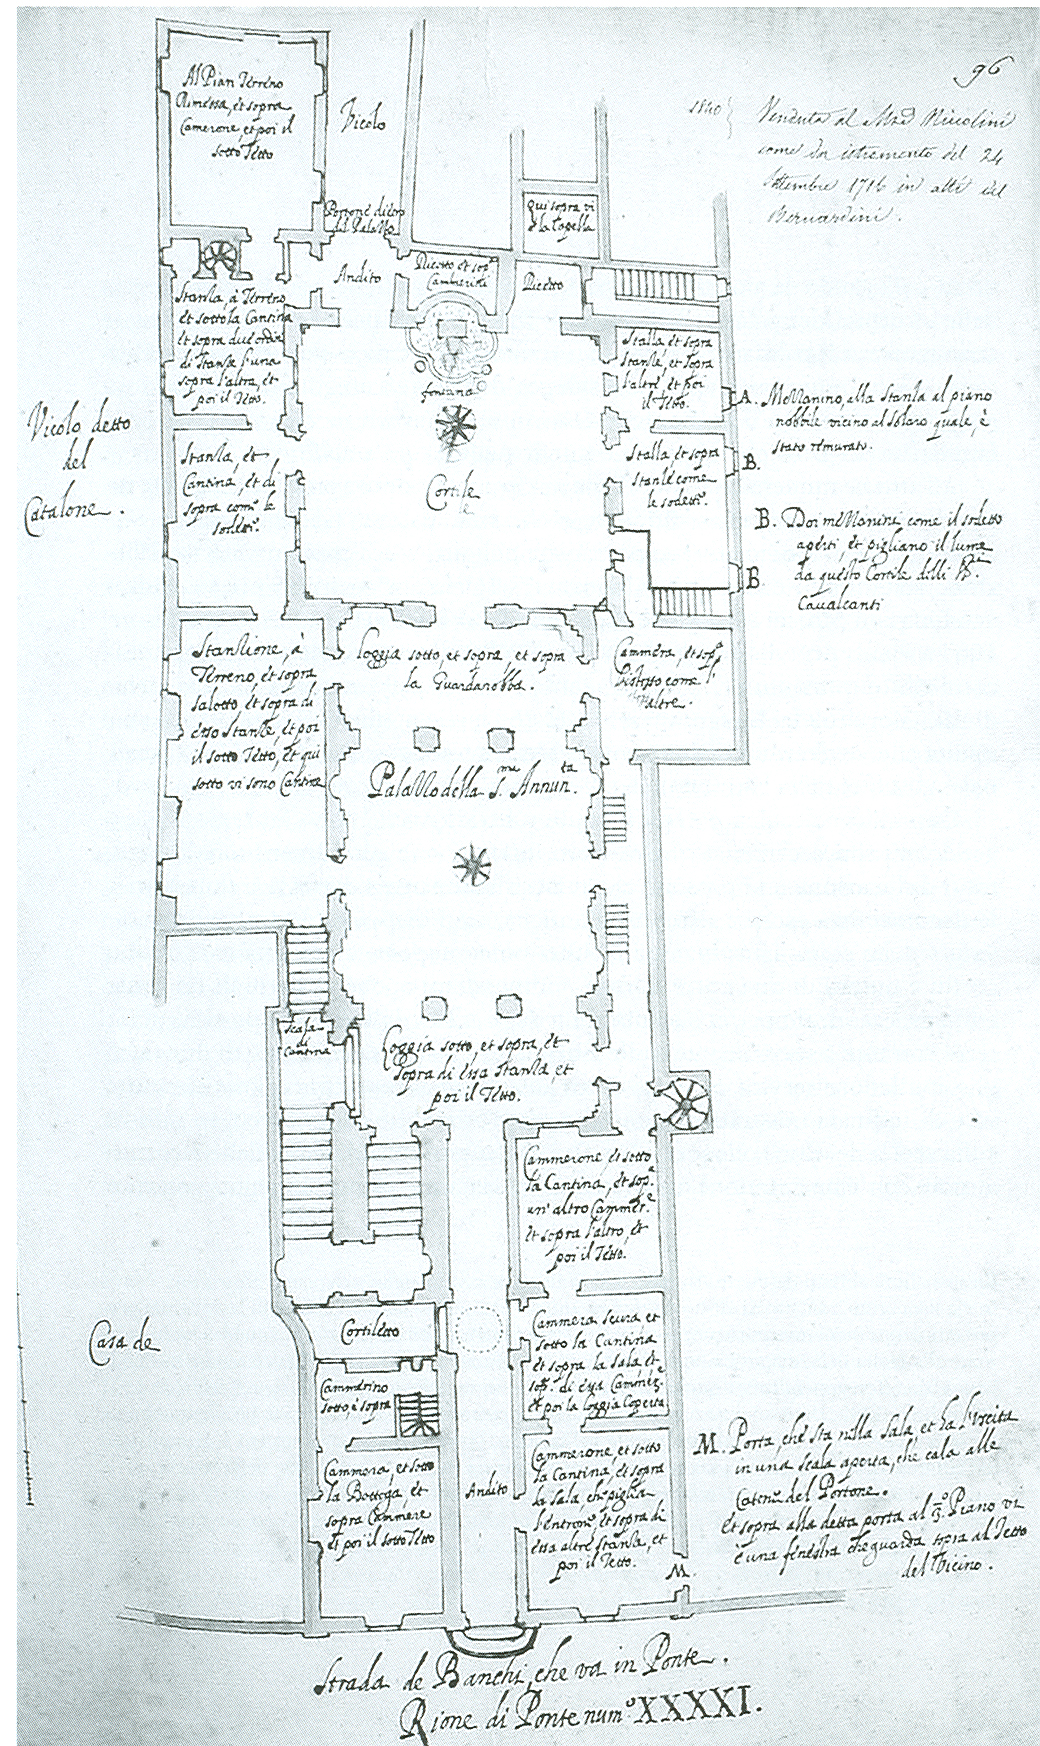 96
1840
Venduta al Mse Niccolini
come da istromento del 24
Settembre 1716 in atti del
Bernardini.
Al Pian Terreno
Rimessa, et sopra
Camerone, et poi il
sotto Tetto
Vicolo
Portone dietro
del Palazzo
qui sopra vi
è la Capella
Andito
Ricetto et sopa
Cammerini
Ricetto
Stanza, à Terreno
et sotto la Cantina
et sopra due ordini
di Stanze l'una
sopra l'altra, et
poi il Tetto.
fontana
Stalla et sopra
Stanze, et sopra
l'altre, et poi
il Tetto.
A.
A. Mezzanino, alla Stanza al piano
nobbile vicino al solaro quale, è
stato rimurato.
Vicolo detto
del
Catalone.
Stanza, et
Cantina, et di
sopra come le
sodette.
Cortile
Stalla et sopra
Stanze come
le sodette.
B.
B. Doi mezzanini come il sodetto
aperti, et pigliano il lume
da questo Cortile delli SSri
Cavalcanti
B.
Stanzione, à
Terreno, et sopra
salotto, et sopra di
esso Stanze, et poi
il sotto Tetto, et qui
sotto vi sono Cantine
Loggia sotto, et sopra, et sopra
la Guardarobba.
Cammera, et sopa
l'istesso come l'
altre.
Palazzo della S.ma Annunta.
Scala
di
Cantina
Loggia sotto, et sopra, et
sopra di essa stanza, et
poi il Tetto.
Cammerone et sotto
la Cantina, et sopa
un' altro Cammere
et sopra l'altro, et
poi il Tetto.
Casa de
Cortiletto
Cammera scura et
sotto la Cantina
et sopra la sala, et
sopa di essa Cammere
et poi la loggia Coperta
Cammerino
sotto, e sopra
Cammera, et sotto
la Bottega, et
sopra Cammere
et poi il sotto Tetto
Andito
Cammerone, et sotto
la Cantina, et sopra
la sala, che piglia
l'entrone, et sopra di
essa altre stanze, et
poi il Tetto.
M.
M. Porta, che sta nella sala, et ha l'Uscita
in una scala aperta, che cala alle
Catene del Portone.
et sopra alla detta porta al 3o Piano vi
è una fenestra che guarda sopra al Tetto
del Vicino.
Strada de Banchi, che va in Ponte.
Rione di Ponte numo XXXXI.